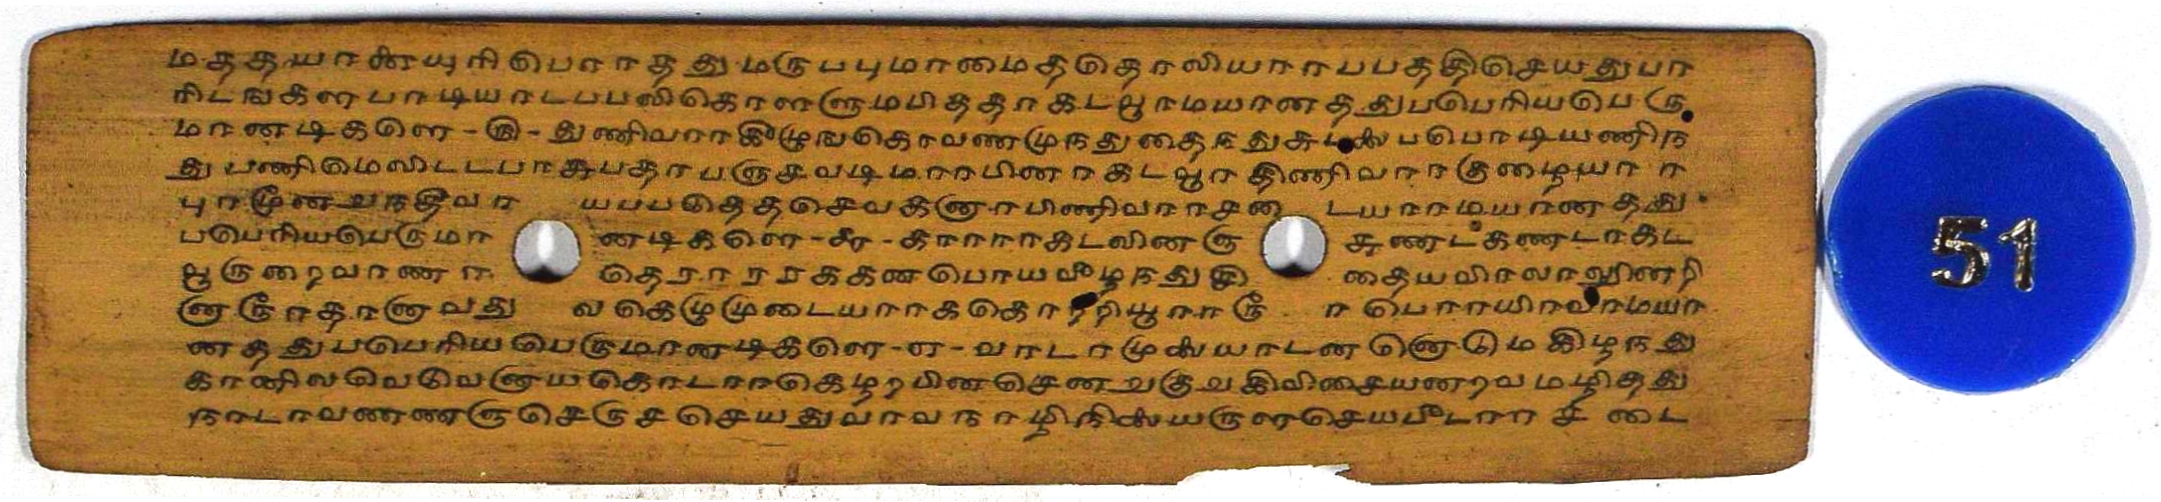 மததயானையுரிபொாததுமருபபுமாமைததொலியாாபபததிசெயதுபா
ரிடஙகளபாடியாடபபலிகொளளுமபிததாகடவூாமயானததுபபெரியபெரு
மானடிகளெ-௫-துணிவாாகீழுஙகொவணமுநதுதைநதுசுடலைபபொடியணிந
துபணிமெலிடடபாசுபதாபஞசவடிமாாபினாகடவூாதிணிவாாகுழையாா
புாமூனறுநதீவா யபபடுததசெவகனாாபிணிவாாசடை யாாமயானதது
பபெரியபெருமா னடிகளெ-௬-காராாகடலினஞ சுணடகணடாகட
வூருறைவாணா தெராரரககனபொயவீழநதுசி தையவிரலாலூனறி
னாரூாதானாவது லகெழுமுடையாாககொறறியூாாரூ ாபொாயிரவாமயா
னததுபபெரியபெருமானடிகளெ-எ-வாடாமுலையாடனனொடுமகிழநது
கானிலவெடுவனாயகொடாாகெழறபினசெனறுகுறுகிவிசையனறவமழிதது
நாடாவணணஞசெருசசெயதுவாவநாழிநிலையருளசெயபீடாாசடை